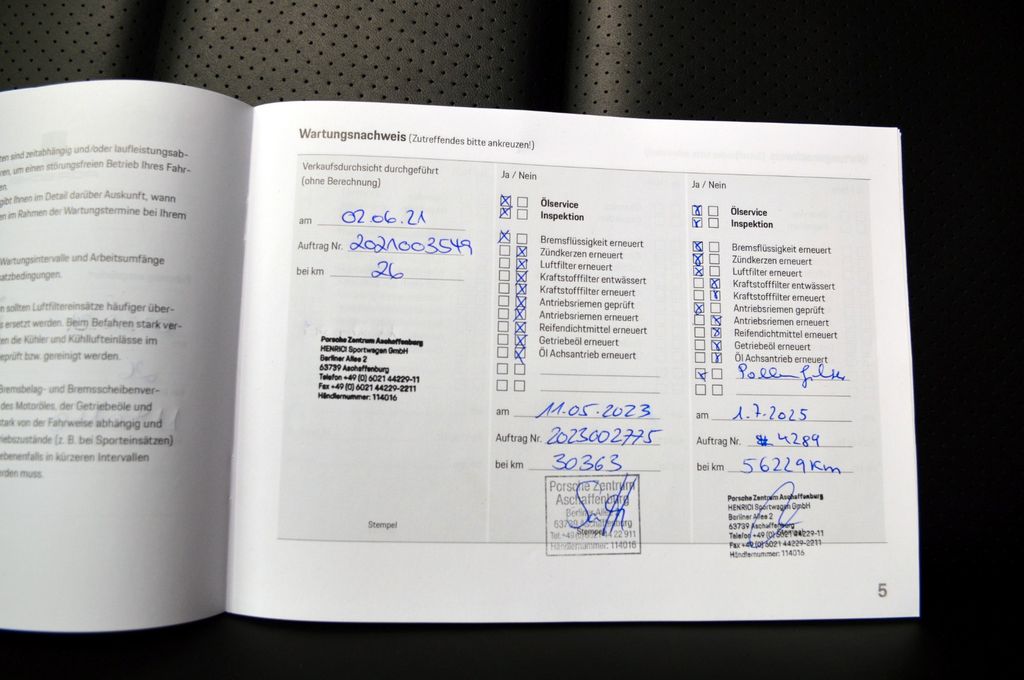 ten sind zeitabhängig und/oder laufleistungsab-
ren, um einen störungsfreien Betrieb Ihres Fahr-
en.
gibt Ihnen im Detail darüber Auskunft, wann
en im Rahmen der Wartungstermine bei Ihrem
Wartungsintervalle und Arbeitsumfänge
satzbedingungen.
n sollten Luftfiltereinsätze häufiger über-
s ersetzt werden. Beim Befahren stark ver-
en die Kühler und Kühllufteinlässe im
eprüft bzw. gereinigt werden.
Bremsbelag- und Bremsscheibenver-
des Motoröles, der Getriebeöle und
stark von der Fahrweise abhängig und
iebszustände (z. B. bei Sporteinsätzen)
ebenenfalls in kürzeren Intervallen
rden muss.
Wartungsnachweis (Zutreffendes bitte ankreuzen!)
Verkaufsdurchsicht durchgeführt
(ohne Berechnung)
am 02.06.21
Auftrag Nr. 2021003549
bei km 26
Porsche Zentrum Aschaffenburg
HENRICI Sportwagen GmbH
Berliner Allee 2
63739 Aschaffenburg
Telefon +49 (0) 6021 44229-11
Fax +49 (0) 6021 44229-2211
Händlernummer: 114016
Stempel
Ja / Nein
Ölservice
Inspektion
Bremsflüssigkeit erneuert
Zündkerzen erneuert
Luftfilter erneuert
Kraftstofffilter entwässert
Kraftstofffilter erneuert
Antriebsriemen geprüft
Antriebsriemen erneuert
Reifendichtmittel erneuert
Getriebeöl erneuert
Öl Achsantrieb erneuert
am 11.05.2023
Auftrag Nr. 2023002775
bei km 30363
Porsche Zentrum
Aschaffenburg
Berliner Allee
63739 Aschaffenburg
Stempel
Händlernummer: 114016
Ja / Nein
Ölservice
Inspektion
Bremsflüssigkeit erneuert
Zündkerzen erneuert
Luftfilter erneuert
Kraftstofffilter entwässert
Kraftstofffilter erneuert
Antriebsriemen geprüft
Antriebsriemen erneuert
Reifendichtmittel erneuert
Getriebeöl erneuert
Öl Achsantrieb erneuert
Pollenfilter
am 1.7.2025
Auftrag Nr. # 4289
bei km 56229 Km
Porsche Zentrum Aschaffenburg
HENRICI Sportwagen GmbH
Berliner Allee 2
63739 Aschaffenburg
Stempel
Telefon +49 (0) 6021 44229-11
Fax +49 (0) 6021 44229-2211
Händlernummer: 114016
5